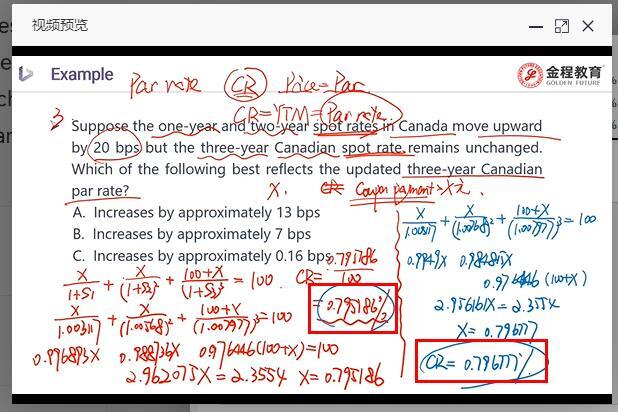 视频预览
Example
金程教育
GOLDEN FUTURE
Par rate CR Price=Par
CR=YTM=Par rate.
3
Suppose the one-year and two-year spot rates in Canada move upward
by 20 bps but the three-year Canadian spot rate remains unchanged.
Which of the following best reflects the updated three-year Canadian
par rate?
X. Coupon payment=X元.
A. Increases by approximately 13 bps
B. Increases by approximately 7 bps
C. Increases by approximately 0.16 bps
X/(1+S1) + X/(1+S2)² + (100+X)/(1+S3)³ = 100
X/1.00311 + X/(1.00568)² + (100+X)/(1.00797)³ = 100
0.996893X 0.988736X 0.976446(100+X)=100
2.962075X=2.3554 X=0.795186
CR= 0.795186/100
=0.795186%
+ X/(1.00768)² + (100+X)/(1.00797)³ = 100
0.9949X 0.984813X
0.976446(100+X)
2.956161X=2.3554
X=0.796777
CR=0.796777%